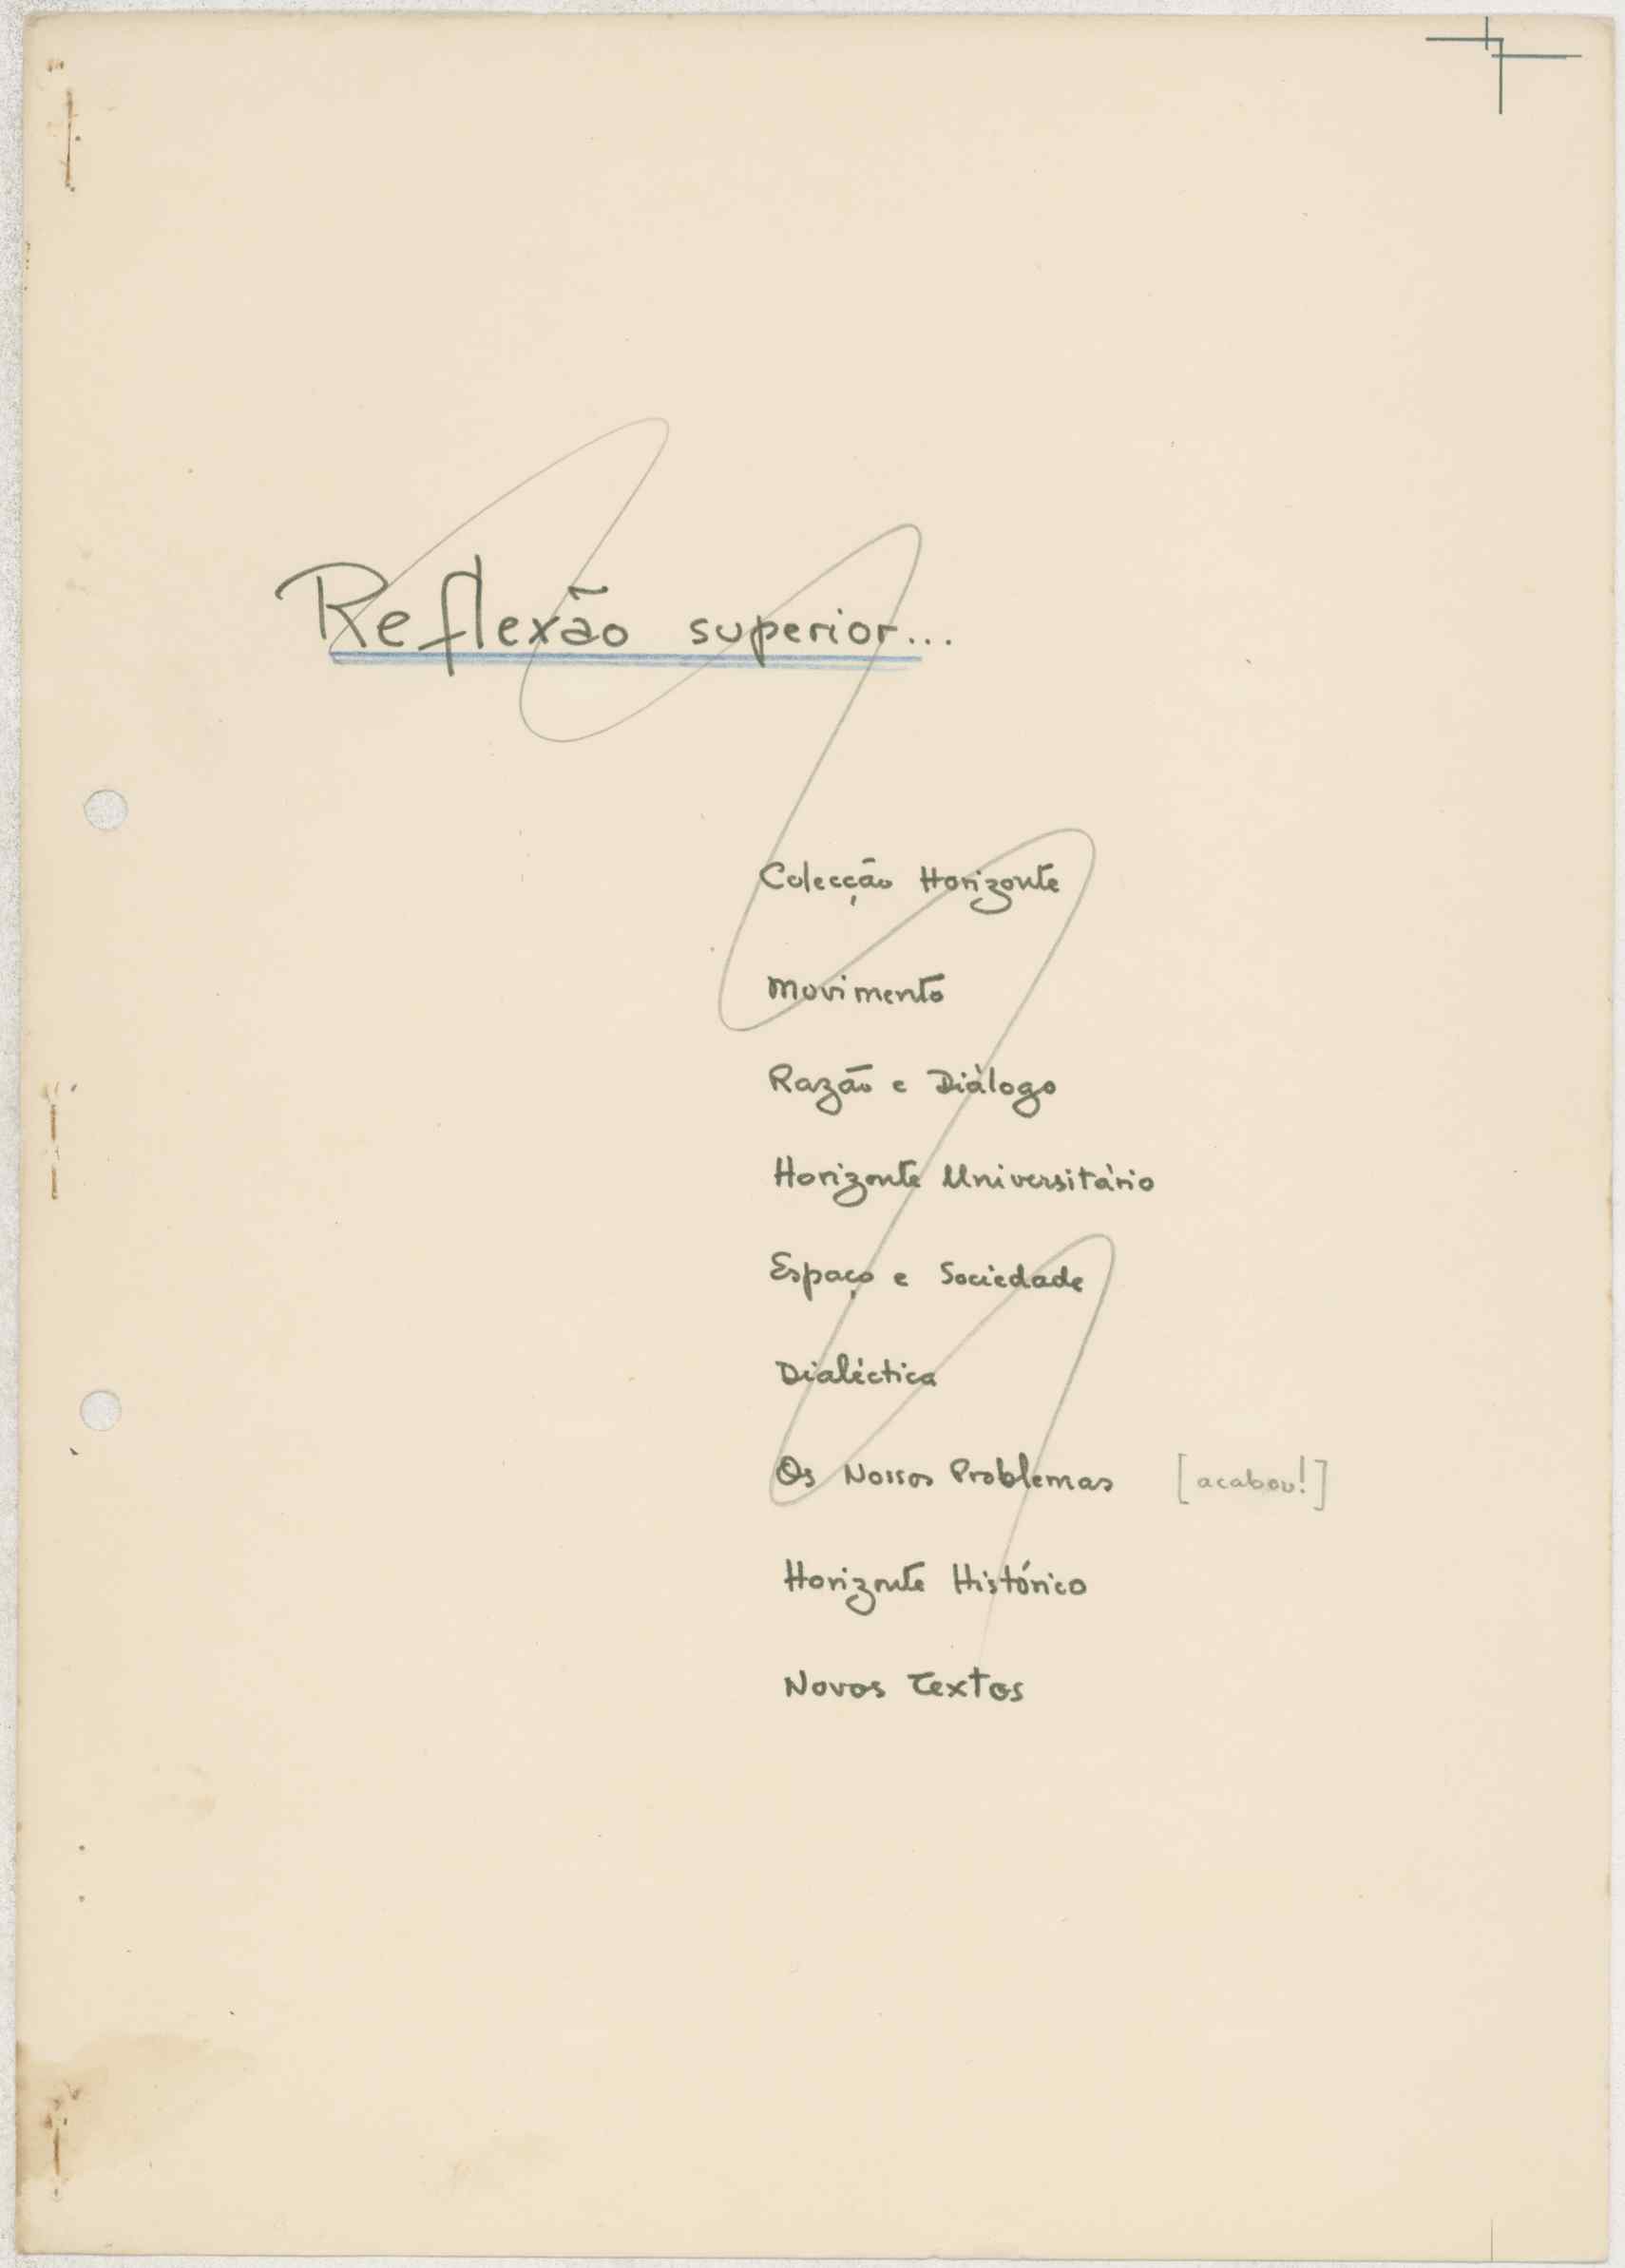 Reflexão superior...
Colecção Horizonte
Movimento
Razão e Diálogo
Horizonte Universitário
Espaço e Sociedade
Dialéctica
Os Nossos Problemas [acabou!]
Horizonte Histórico
Novos Textos